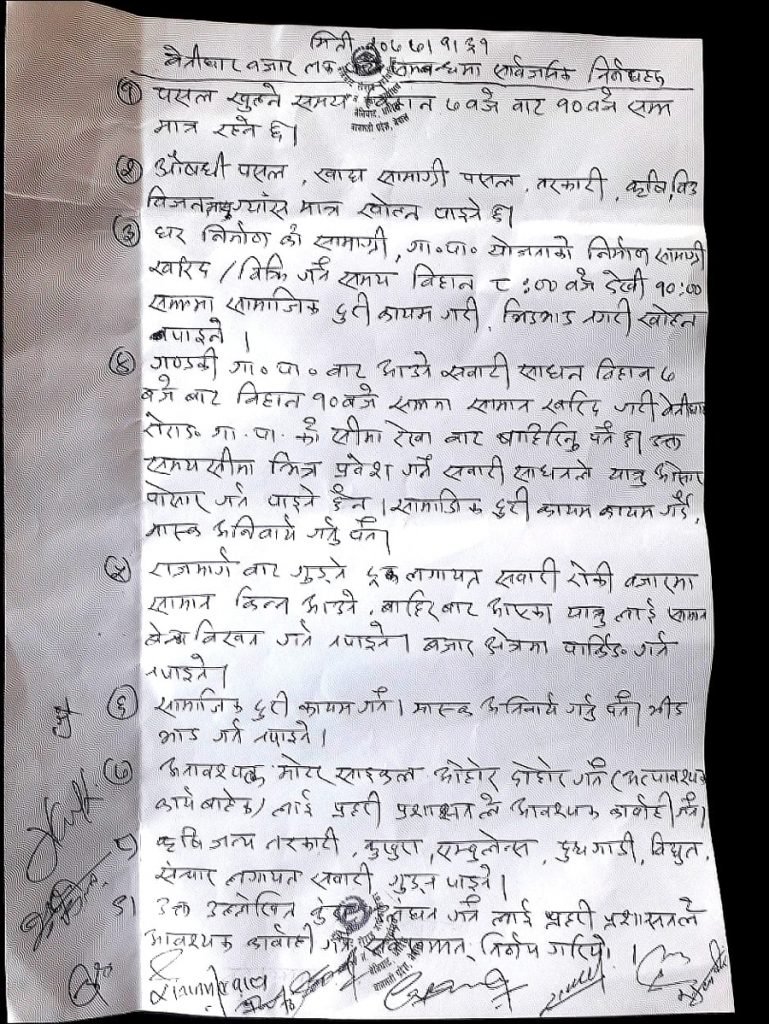 मिती २०७७।१।३१
बेत्रीघाट बजार लक सम्बन्धमा सार्वजनिक निर्णयहरू
१ पसल खुल्ने समय बिहान ७ बजे बाट १० बजे सम्म
मात्र रहने छ।
२ औषधी पसल, खाद्य सामाग्री पसल, तरकारी, कृषि, विउ
विजन ग्याँस मात्र खोल्न पाइने छ।
३ घर निर्माण को सामाग्री, गा॰पा॰ योजनाको निर्माण सामग्री
खरिद / बिक्रि गर्ने समय बिहान ८:०० बजे देखी १०:००
सम्ममा सामाजिक दुरी कायम गरी, भिडभाड नगरी खोल्न
पाइने।
४ गण्डकी गा॰पा॰ बाट आउने सवारी साधन बिहान ७
बजे बाट बिहान १० बजे सम्ममा सामान खरिद गरी
गा.पा. को सीमा रेखा बाट बाहिरिनु पर्ने छ। उक्त
समयसीमा भित्र प्रवेश गर्ने सवारी साधनले यात्रु ओसार
पोसार गर्न पाइने छैन। सामाजिक दुरी कायम कायम गर्दै,
मास्क अनिवार्य गर्नु पर्ने।
५ राजमार्ग बाट गुड्ने ट्रक लगायत सवारी रोकी बजारमा
सामान किन्न आउने, बाहिर बाट आएका यात्रु लाई सामान
बेच्न बिखन गर्न नपाइने। बजार क्षेत्रमा पार्किङ गर्न
नपाइने।
६ सामाजिक दुरी कायम गर्ने। मास्क अनिवार्य गर्नु पर्ने। भीड
भाड गर्न नपाइने।
७ अनावश्यक मोटर साइकल ओहोर दोहोर गर्ने (अत्यावश्यक
कार्य बाहेक) लाई प्रहरी प्रशासन ले आवश्यक कार्वाही गर्ने।
८) कृषि जन्य तरकारी, कुखुरा, एम्बुलेन्स, दुधगाडी, विद्युत,
संचार लगायत सवारी गुड्न पाइने।
९। उक्त उल्लेखित लंघन गर्ने लाई प्रहरी प्रशासनले
आवश्यक कार्वाही गर्ने सर्वसम्मत निर्णय गरियो।